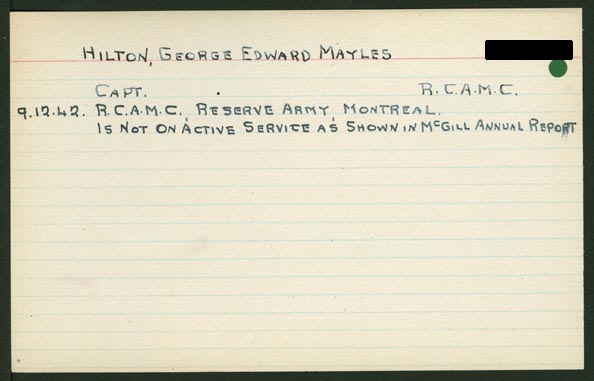 HILTON, GEORGE EDWARD MAYLES
CAPT. R.C.A.M.C.
9.12.42. R.C.A.M.C., RESERVE ARMY, MONTREAL.
IS NOT ON ACTIVE SERVICE AS SHOWN IN McGILL ANNUAL REPORT